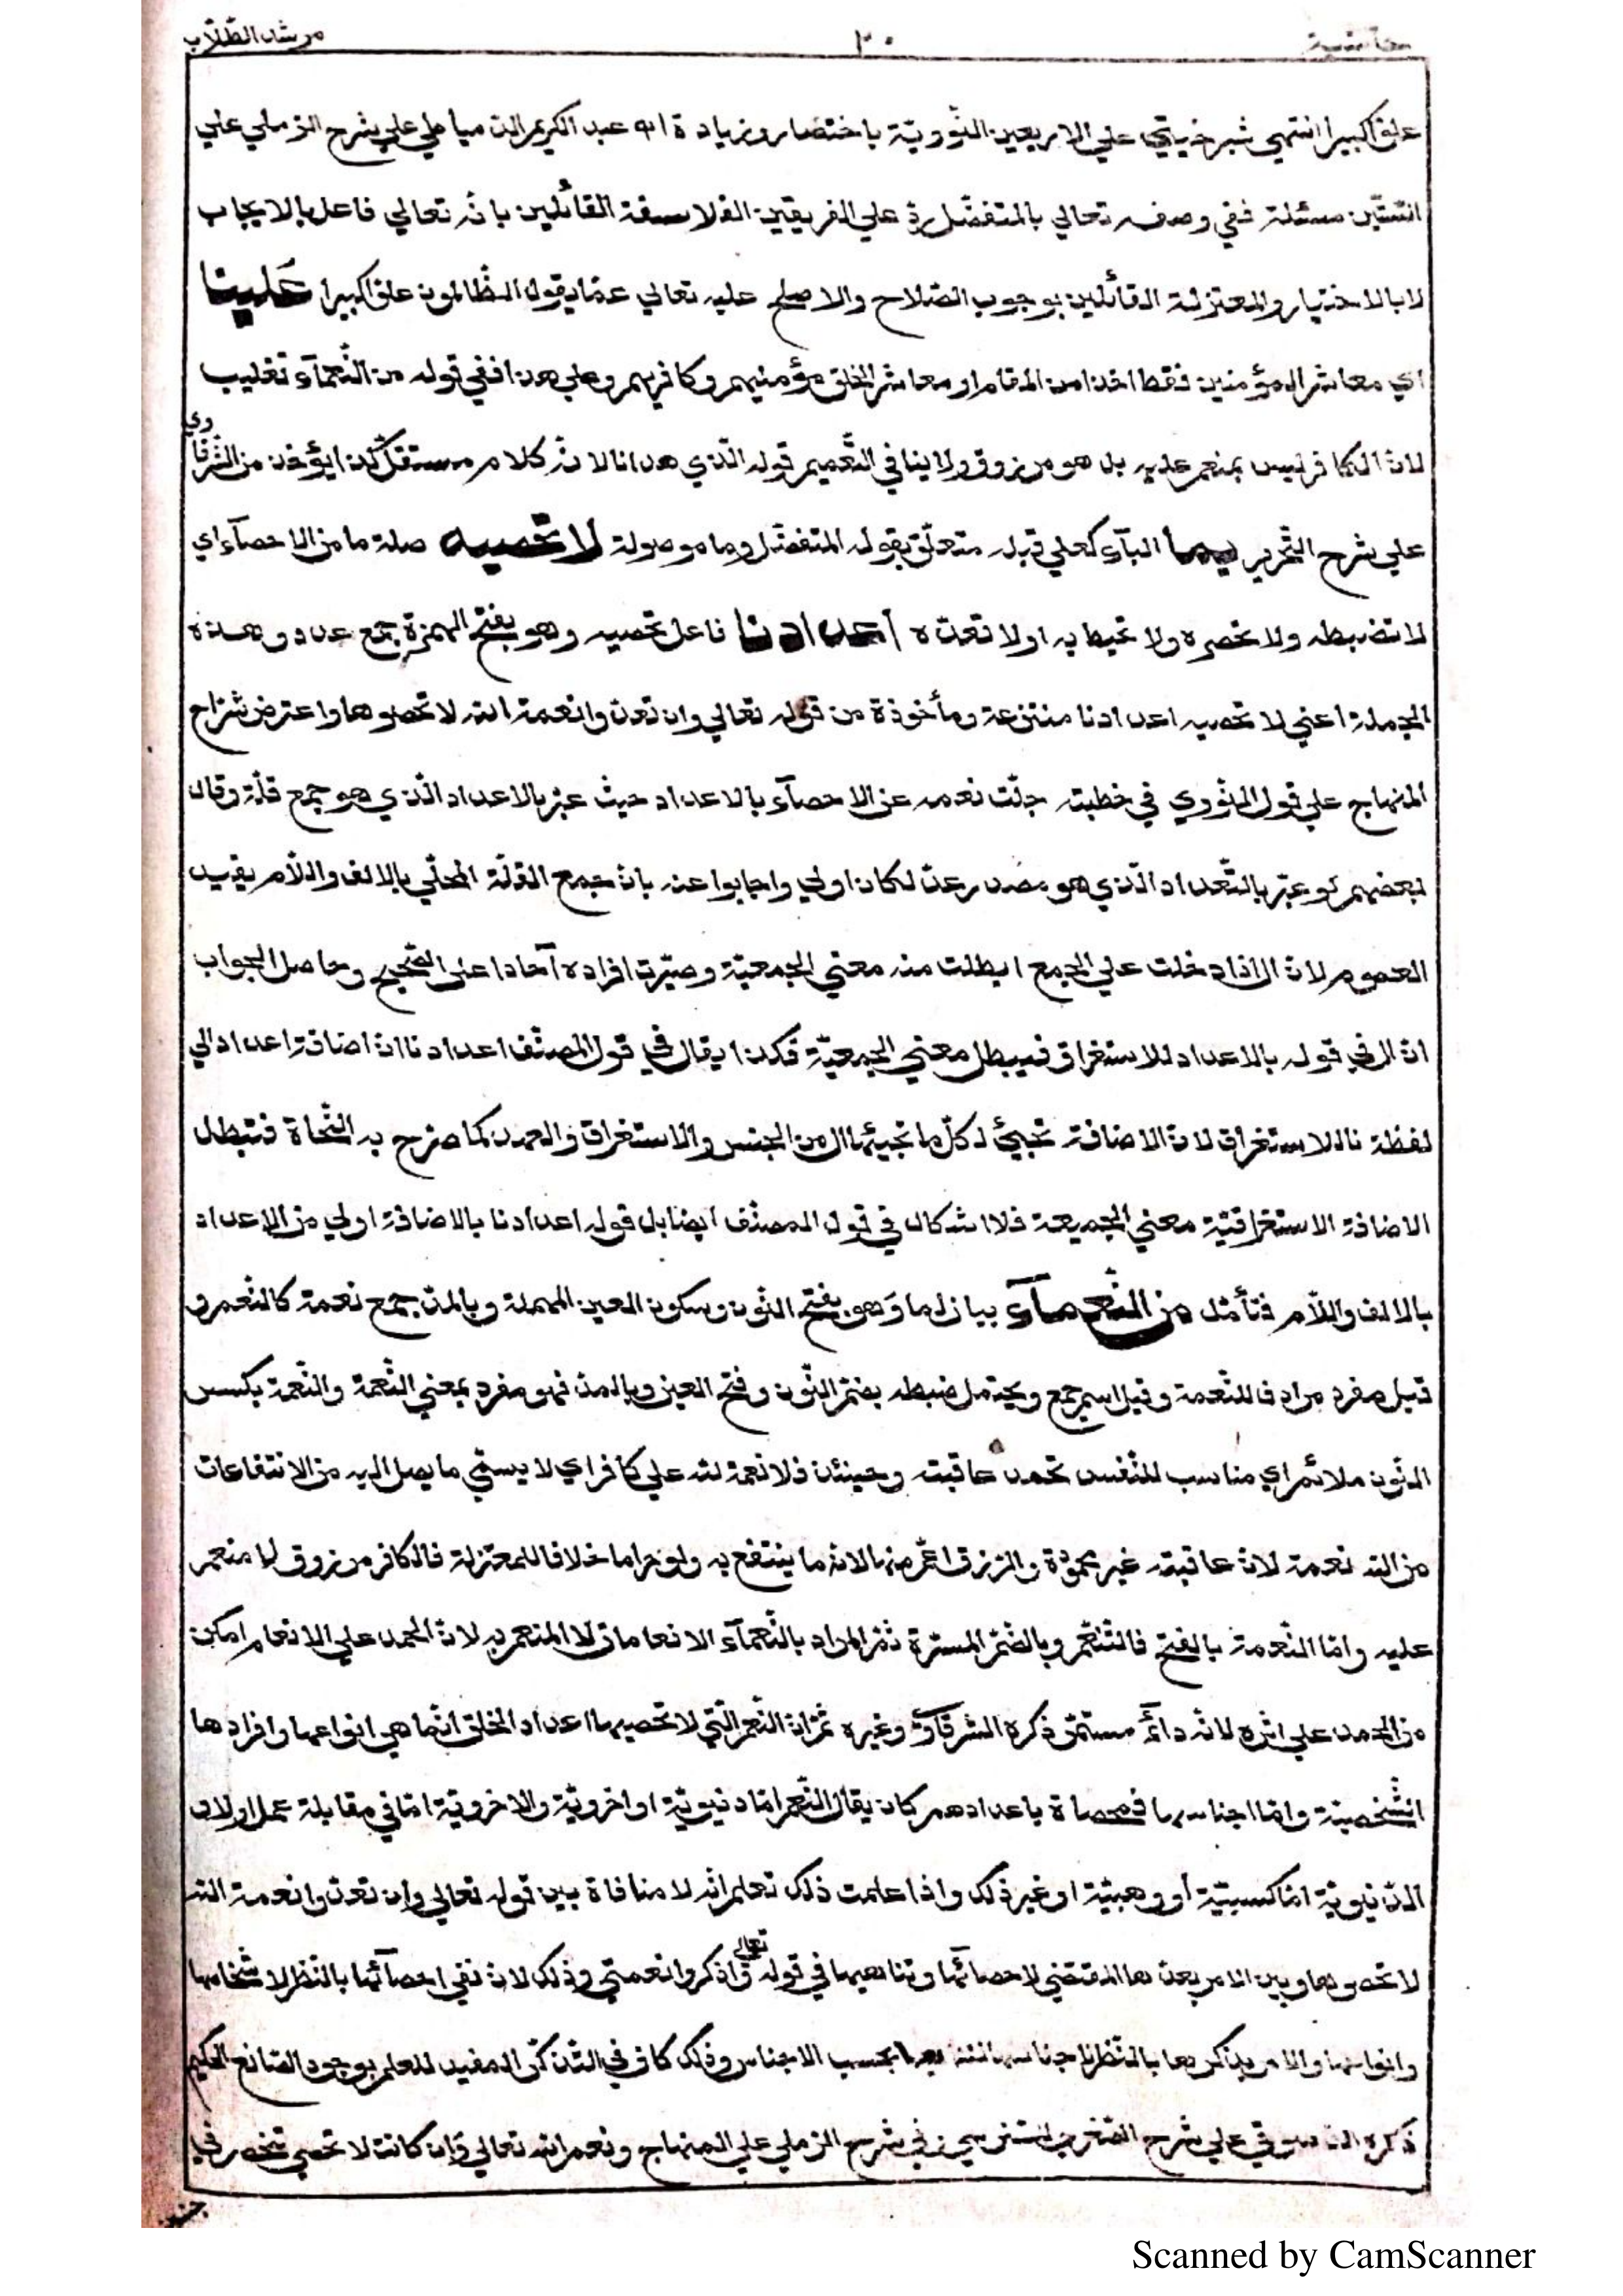 حاشية ٢٠ مرشد الطّلّاب
علوّا كبيرا انتهي شبرخيتي علي الاربعين النّوويّة باختصار وزيادة اه عبد الكريم الدمياطي علي شرح الرّملي علي
الستّين مسئلة ففي وصفه تعالي بالمتفضّل ردّ علي الفريقين الفلاسفة القائلين بانّه تعالي فاعل بالايجاب
لا بالاختيار والمعتزلة القائلين بوجوب الصّلاح والاصلح عليه تعالي عمّا يقول الظّالمون علوّا كبيرا عَلينا
اي معاشر المؤمنين فقط اخذا من المقام او معاشر الخلق مؤمنيهم وكافرهم وعلي هذا ففي قوله من النّعمآء تغليب
لانّ الكافر ليس بمنعم عليه بل هو مرزوق ولا ينافي التّعميم قوله الّذي هدانا لانّه كلام مستقلّ كذا يؤخذ من الشّرقاوي
علي شرح التّحرير بما البآء كعلي قبله متعلّق بقوله المتفضّل وما موصولة لا تحصيه صلة ما من الاحصآء اي
لا تضبطه ولا تحصره ولا تحيط به او لا تعدّه أعدادنا فاعل تحصيه وهو بفتح الهمزة جمع عدد وهذه
الجملة اعني لا تحصيه اعدادنا منتزعة ومأخوذة من قوله تعالي وان تعدّوا نعمة الله لا تحصوها واعترض شرّاح
المنهاج علي قول النّووي في خطبته جلّت نعمه عن الاحصآء بالاعداد حيث عبّر بالاعداد الّذي هو جمع قلّة وقال
بعضهم لو عبّر بالتّعداد الّذي هو مصدر عدّ لكان اولي واجابوا عنه بانّ جمع القلّة المحلّي بالالف واللّام يفيد
العموم لانّ ال اذا دخلت علي الجمع ابطلت منه معني الجمعيّة وصيّرت افراده آحادا علي الصّحيح وحاصل الجواب
انّ ال في قوله بالاعداد للاستغراق فيبطل معني الجمعيّة فكذا يقال في قول المصنّف اعدادنا انّ اضافة اعداد الي
لفظة نا للاستغراق لانّ الاضافة تجيئ لكلّ ما تجيئها ال من الجنس والاستغراق والعهد كما صرّح به النّحاة فتبطل
الاضافة الاستغراقيّة معني الجميعة فلا اشكال في قول المصنّف ايضا بل قوله اعدادنا بالاضافة اولي من الاعداد
بالالف واللّام فتأمّل من النّعمآء بيان لما وَهو بفتح النّون وسكون العين المهملة وبالمدّ جمع نعمة كالنّعم و
قيل مفرد مرادف للنّعمة وقيل اسم جمع ويحتمل ضبطه بضمّ النّون وفتح العين وبالمدّ فهو مفرد بمعني النّعمة والنّعمة بكسر
النّون ملائم اي مناسب للنّفس تحمد عاقبته وحينئذ فلا نعمة لله علي كافر اي لا يسمّي ما يصل اليه من الانتفاعات
من الله نعمة لانّ عاقبته غير محمودة والرّزق اعمّ منها لانّه ما ينتفع به ولو حراما خلافا للمعتزلة فالكافر مرزوق لا منعم
عليه وامّا النّعمة بالفتح فالتّنعّم وبالضّمّ المسرّة ثمّ المراد بالنّعمآء الانعامات لا المنعم به لانّ الحمد علي الانعام امكن
من الحمد علي اثره لانّه دائم مستمرّ ذكره الشّرقاوي وغيره ثمّ انّ النّعم الّتي لا تحصيها اعداد الخلق انّما هي انواعها وافرادها
الشّخصيّة وامّا اجناسها فمحصاة باعدادهم كان يقال النّعم امّا دنيويّة او اخرويّة والاخرويّة امّا في مقابلة عمل او لا و
الدّنيويّة امّا كسبيّة أو وهبيّة او غير ذلك واذا علمت ذلك تعلم انّه لا منافاة بين قوله تعالي وان تعدّوا نعمة الله
لا تحصوها وبين الامر بعدّها المقتضي لاحصائها وتناهيها في قوله تعالي واذكروا نعمتي وذلك لان نفي احصآئها بالنّظر لاشخاصها
وانواعها والامر بذكرها بالنّظر لاجناسها بحسب الاجناس وذلك كاف في التّذكّر المفيد للعلم بوجود الصّانع الحكيم
ذكره الدّسوقي علي شرح الصّغري للسّنوسي وفي شرح الرّملي علي المنهاج ونعم الله تعالي وان كانت لا تحصي تنحصر في
جنسين
Scanned by CamScanner